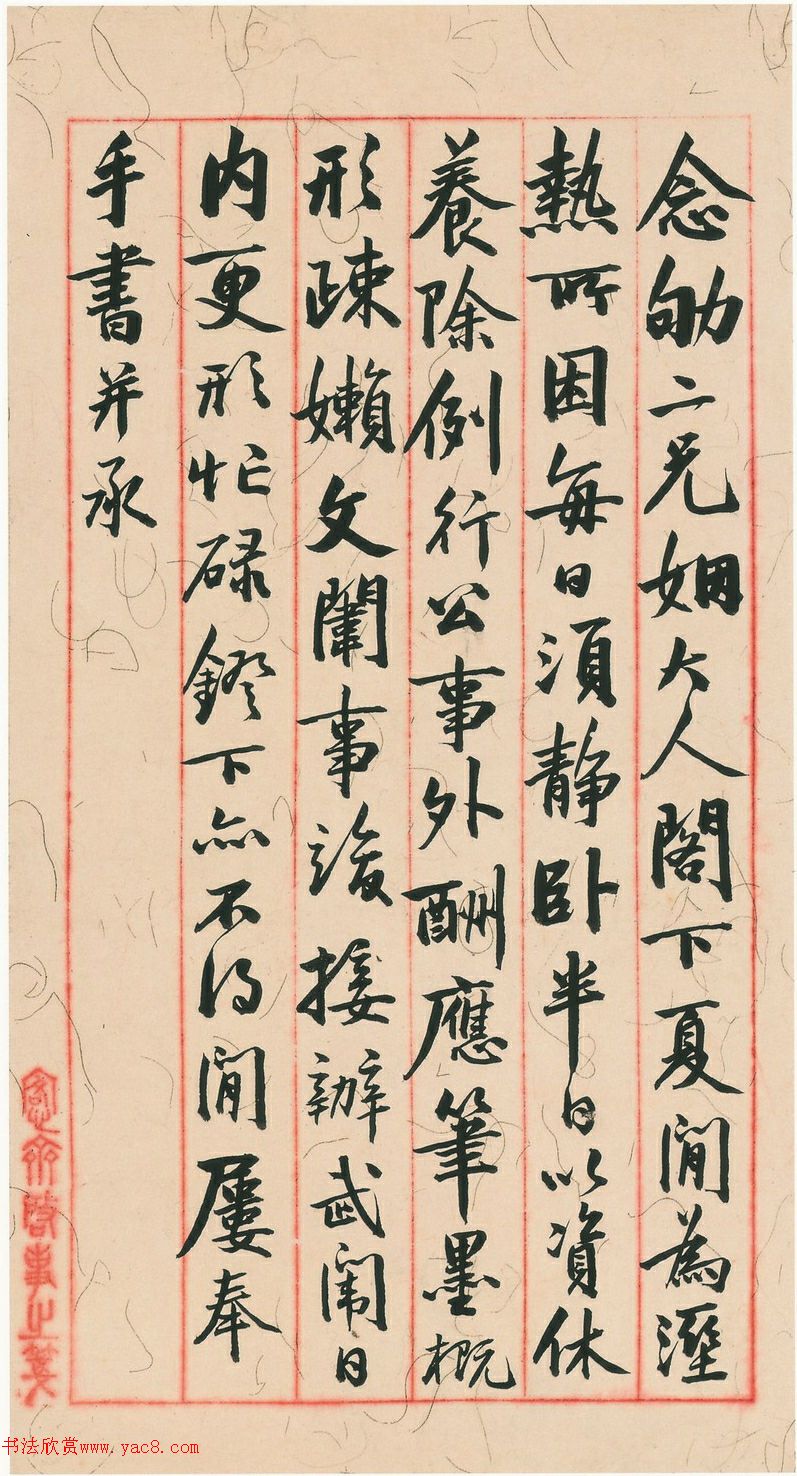 念劬二兄姻大人閣下夏間為溼
熱所困每日須靜卧半日以資休
養除例行公事外酬應筆墨概
形疎嬾文闈事竣接辦武闈日
內更形忙碌鐙下亦不得閒屢奉
手書并承
愙齋啓事之箋
书法欣赏www.yac8.com